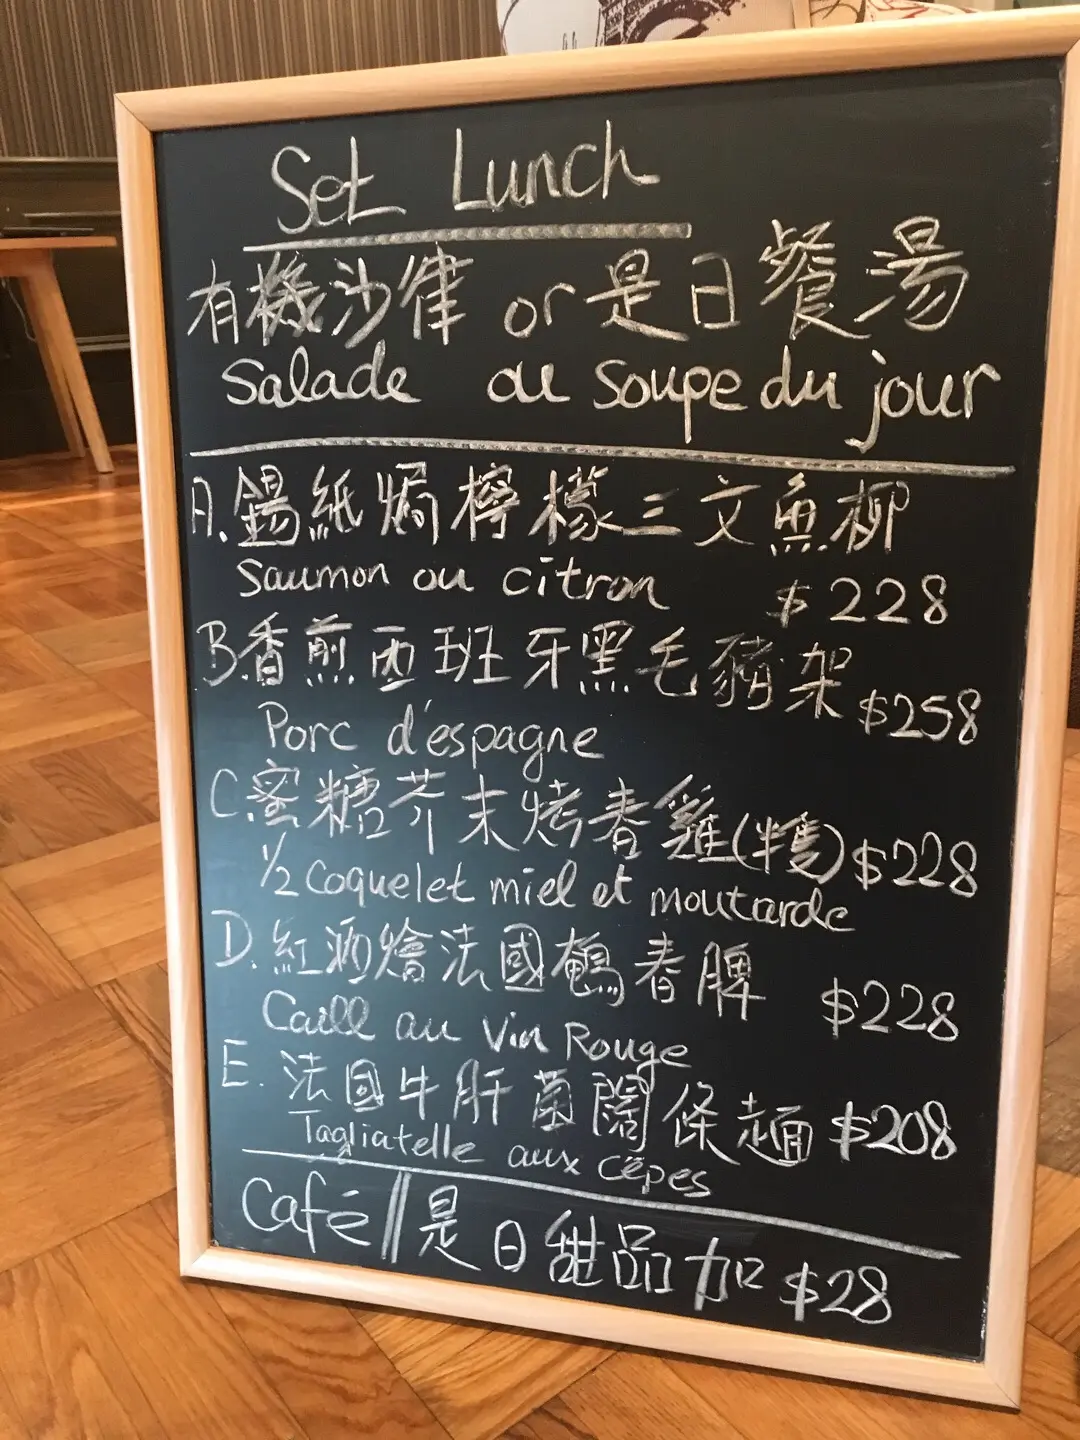 Set Lunch
有機沙律 or 是日餐湯
Salade ou soupe du jour
A. 錫紙焗檸檬三文魚柳
Saumon ou citron $228
B. 香煎西班牙黑毛豬架 $258
Porc d'espagne
C. 蜜糖芥末烤春雞(半隻) $228
1/2 Coquelet miel et moutarde
D. 紅酒燴法國鵪春脾 $228
Caill au Vin Rouge
E. 法國牛肝菌闊條麵 $208
Tagliatelle aux cêpes
Café // 是日甜品 加 $28